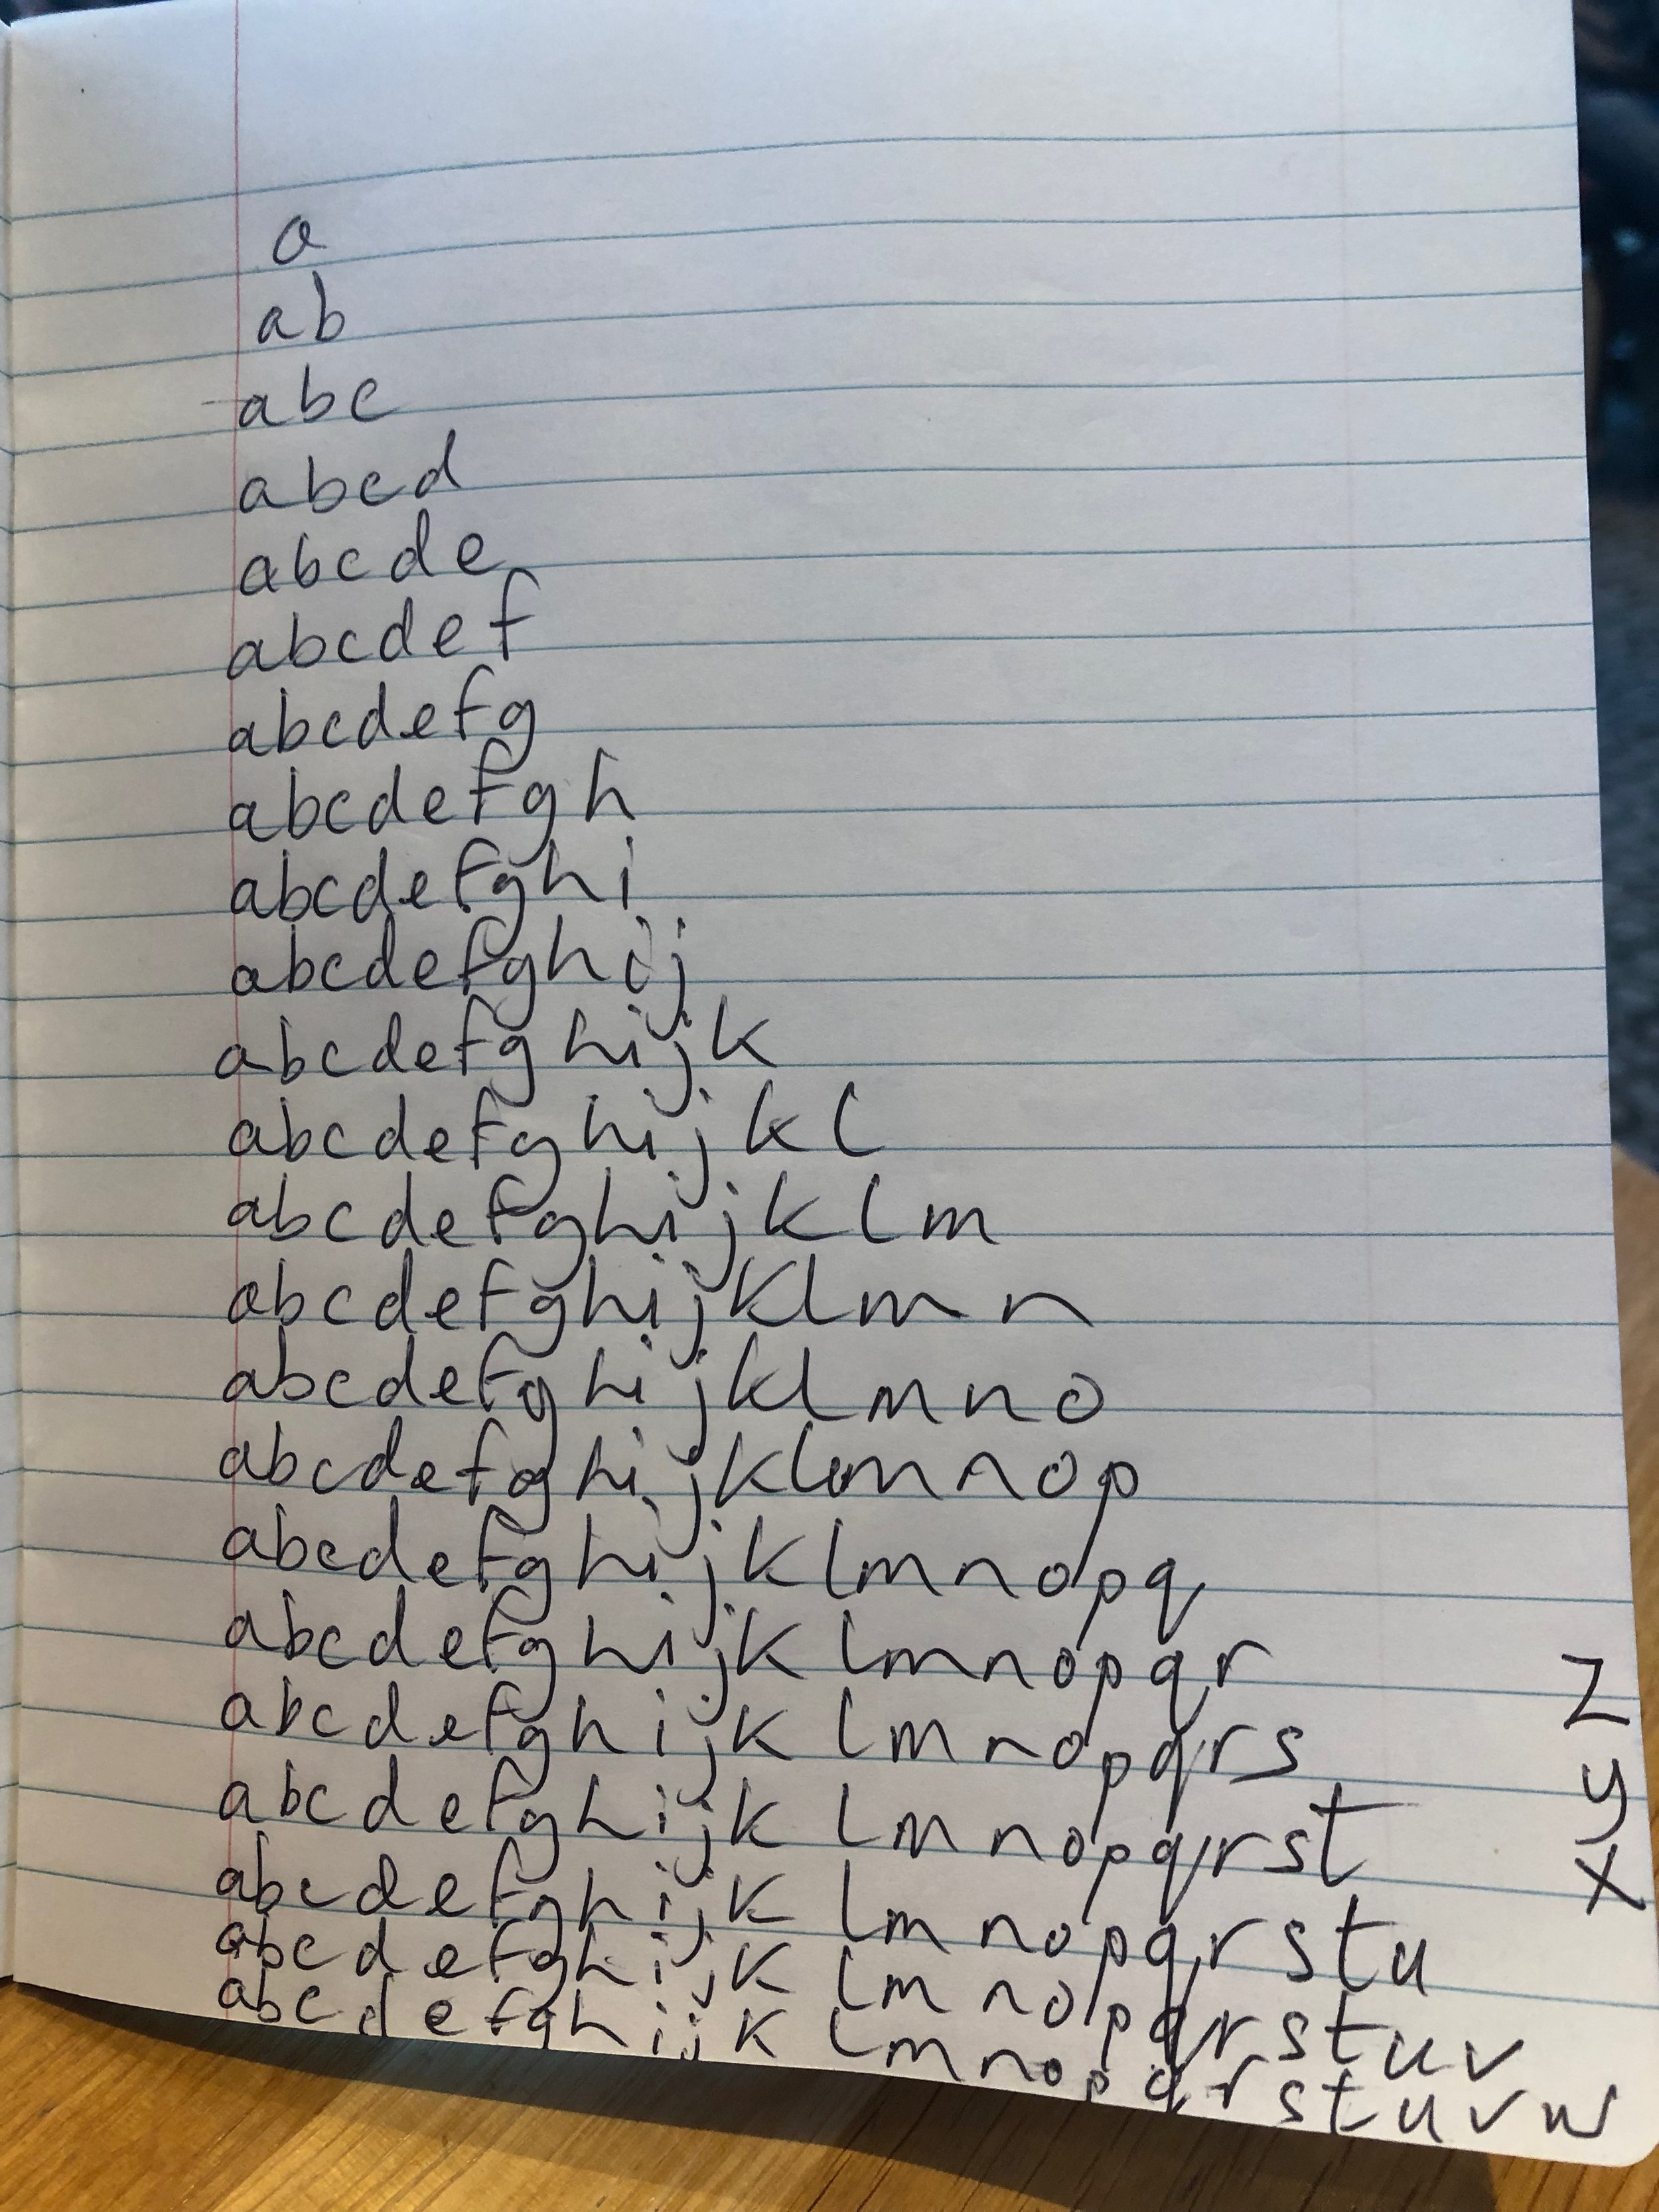 a
ab
abc
abcd
abcde
abcdef
abcdefg
abcdefgh
abcdefghi
abcdefghij
abcdefghijk
abcdefghijkl
abcdefghijklm
abcdefghijklmn
abcdefghijklmno
abcdefghijklmnop
abcdefghijklmnopq
abcdefghijklmnopqr
abcdefghijklmnopqrs
abcdefghijklmnopqrst
abcdefghijklmnopqrstu
abcdefghijklmnopqrstuv
abcdefghijklmnopqrstuvw
z
y
x